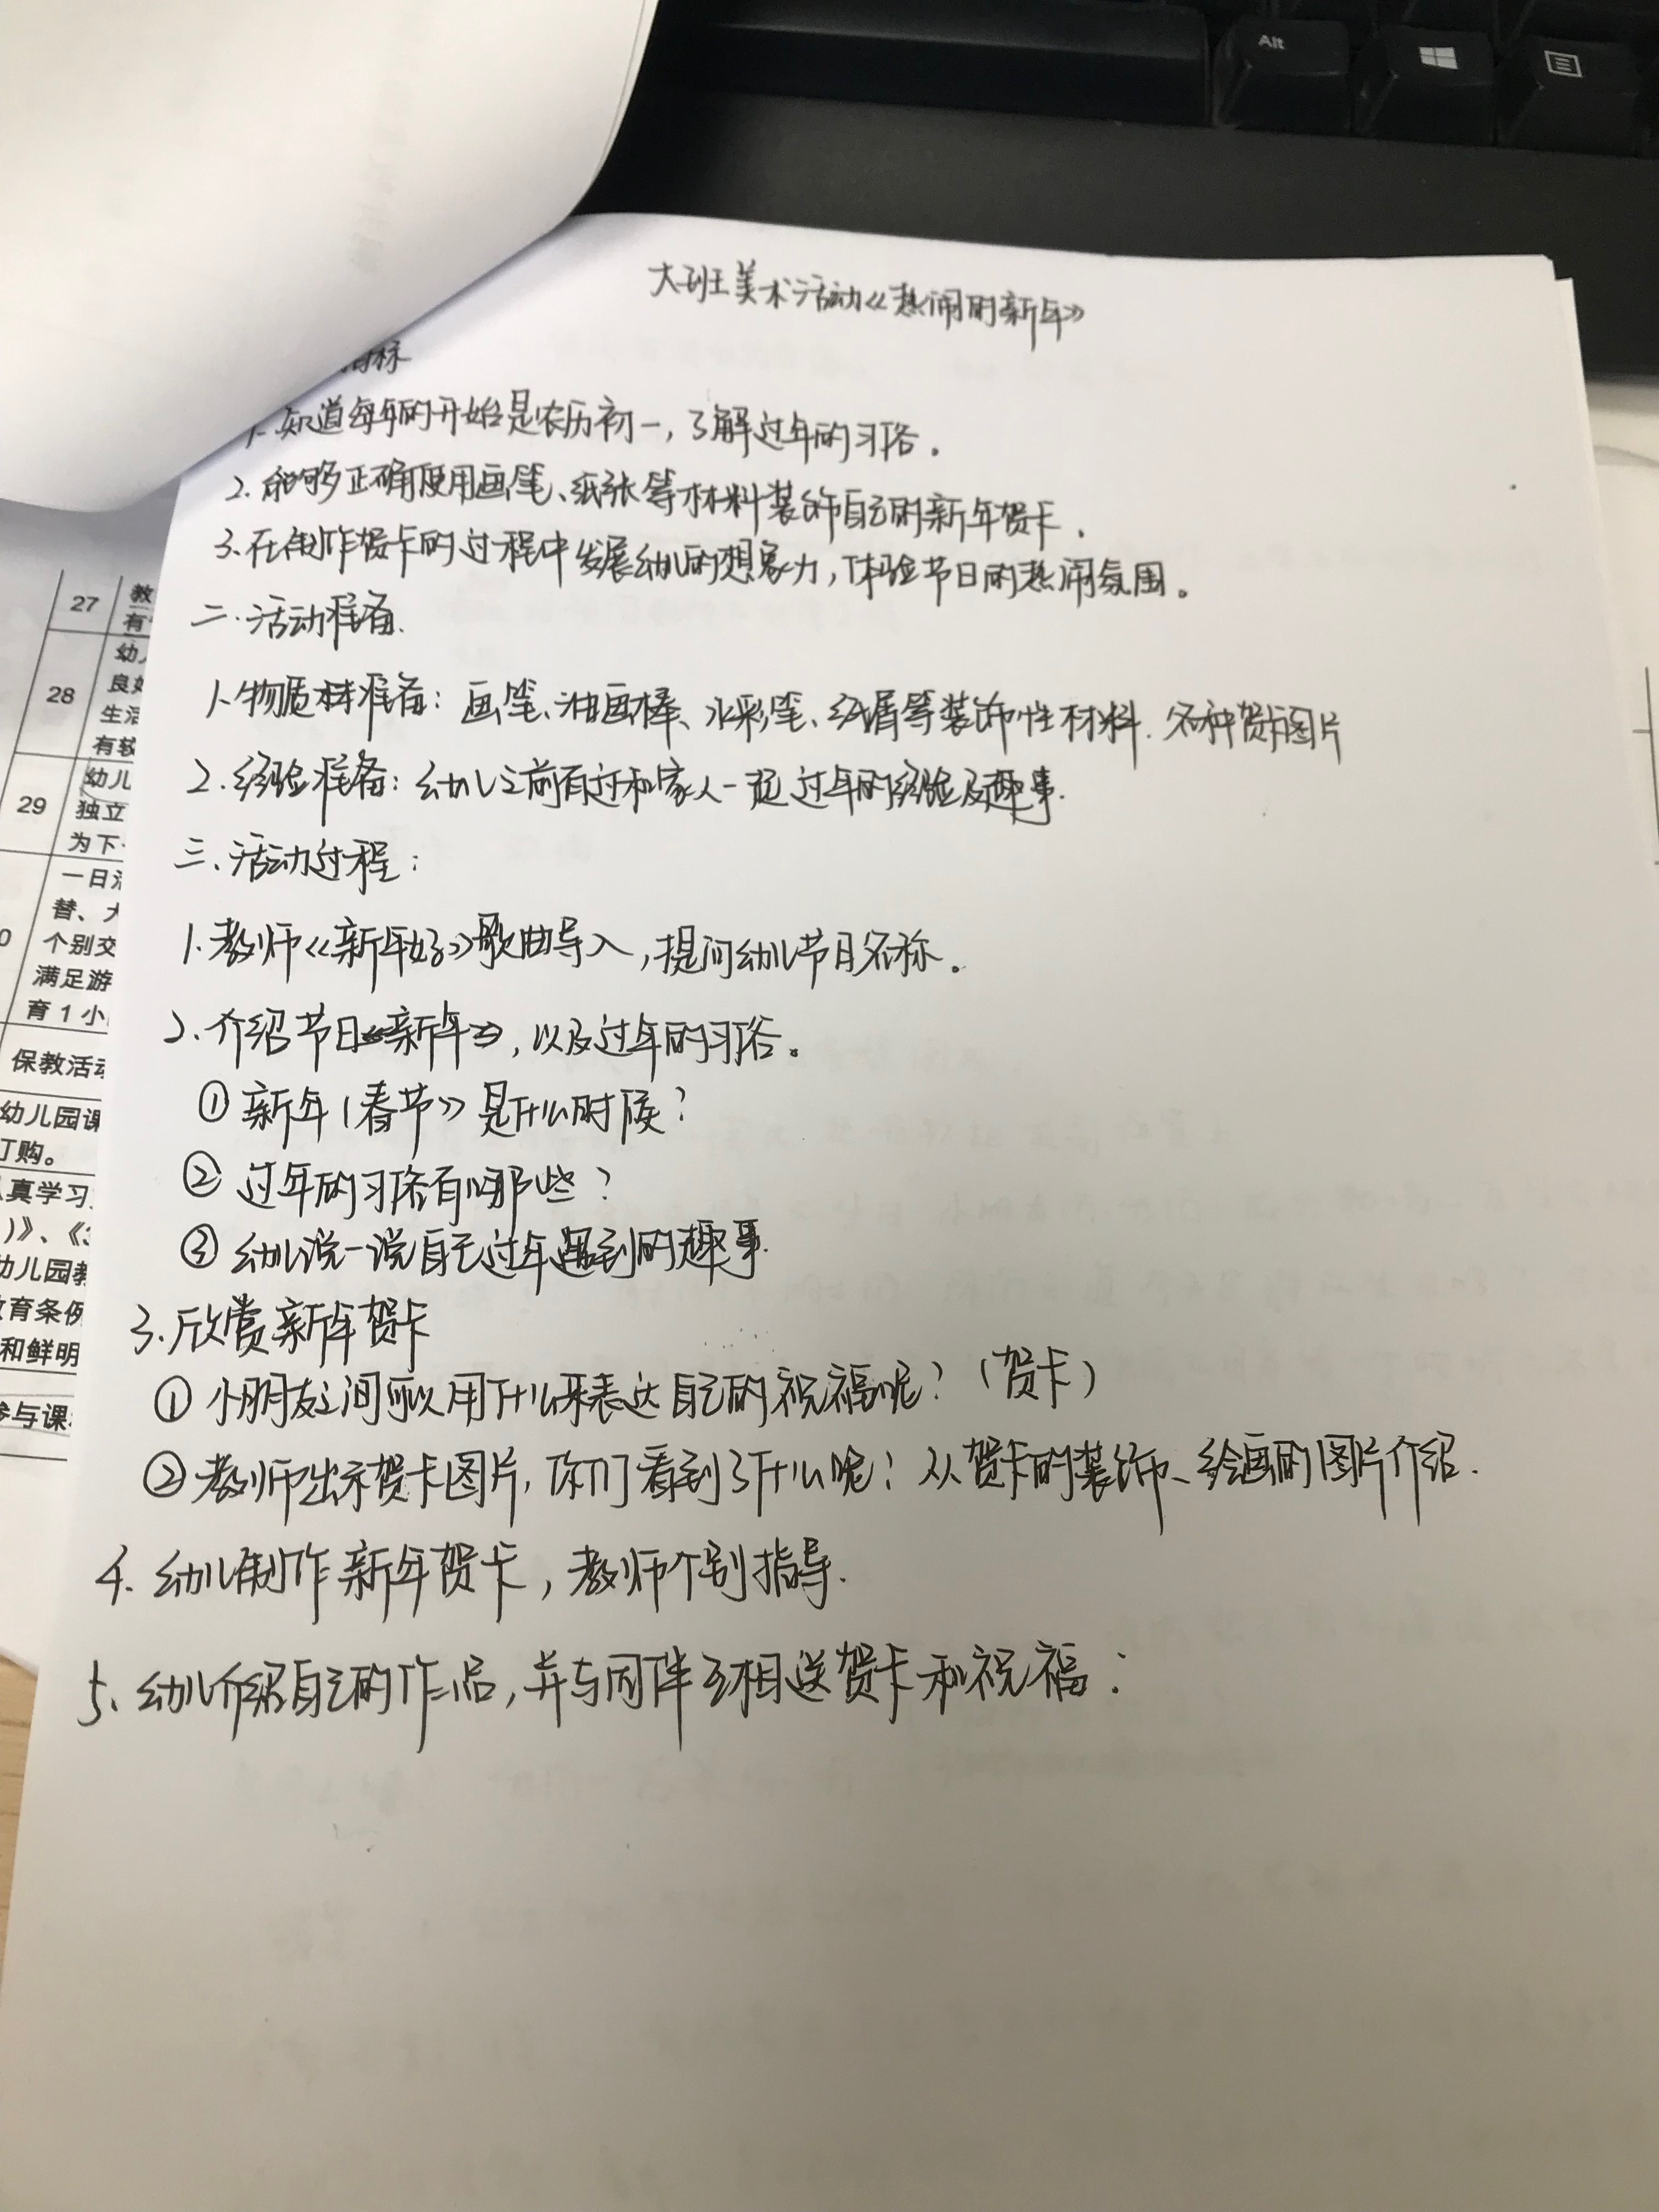 Alt
大班美术活动《热闹的新年》
目标
1.知道每年的开始是农历初一,了解过年的习俗。
2.能够正确使用画笔、纸张等材料装饰自己的新年贺卡.
3.在制作贺卡的过程中发展幼儿的想象力,体验节日的热闹氛围。
二.活动准备.
1.物质准备:画笔、油画棒、水彩笔、纸屑等装饰性材料.各种贺卡图片
2.经验准备:幼儿之前有过和家人一起过年的经验及趣事.
三、活动过程:
1.教师《新年好》歌曲导入,提问幼儿节日名称。
2.介绍节日新年,以及过年的习俗。
①新年(春节》是什么时候?
②过年的习俗有哪些?
③幼儿说一说自己过年遇到的趣事.
3.欣赏新年贺卡
①小朋友之间可以用什么来表达自己的祝福呢?(贺卡)
②教师出示贺卡图片,你们看到了什么呢?从贺卡的装饰、绘画的图片介绍.
4.幼儿制作新年贺卡,教师个别指导.
5、幼儿介绍自己的作品,并与同伴互相送贺卡和祝福:
27
教
有
28
幼
良好
生活
有较
29
幼儿
独立
为下
0
一日
替、大
个别交
满足游
育1小
保教活动
幼儿园课
订购。
真学习
)》、《
幼儿园教
教育条例
和鲜明
参与课